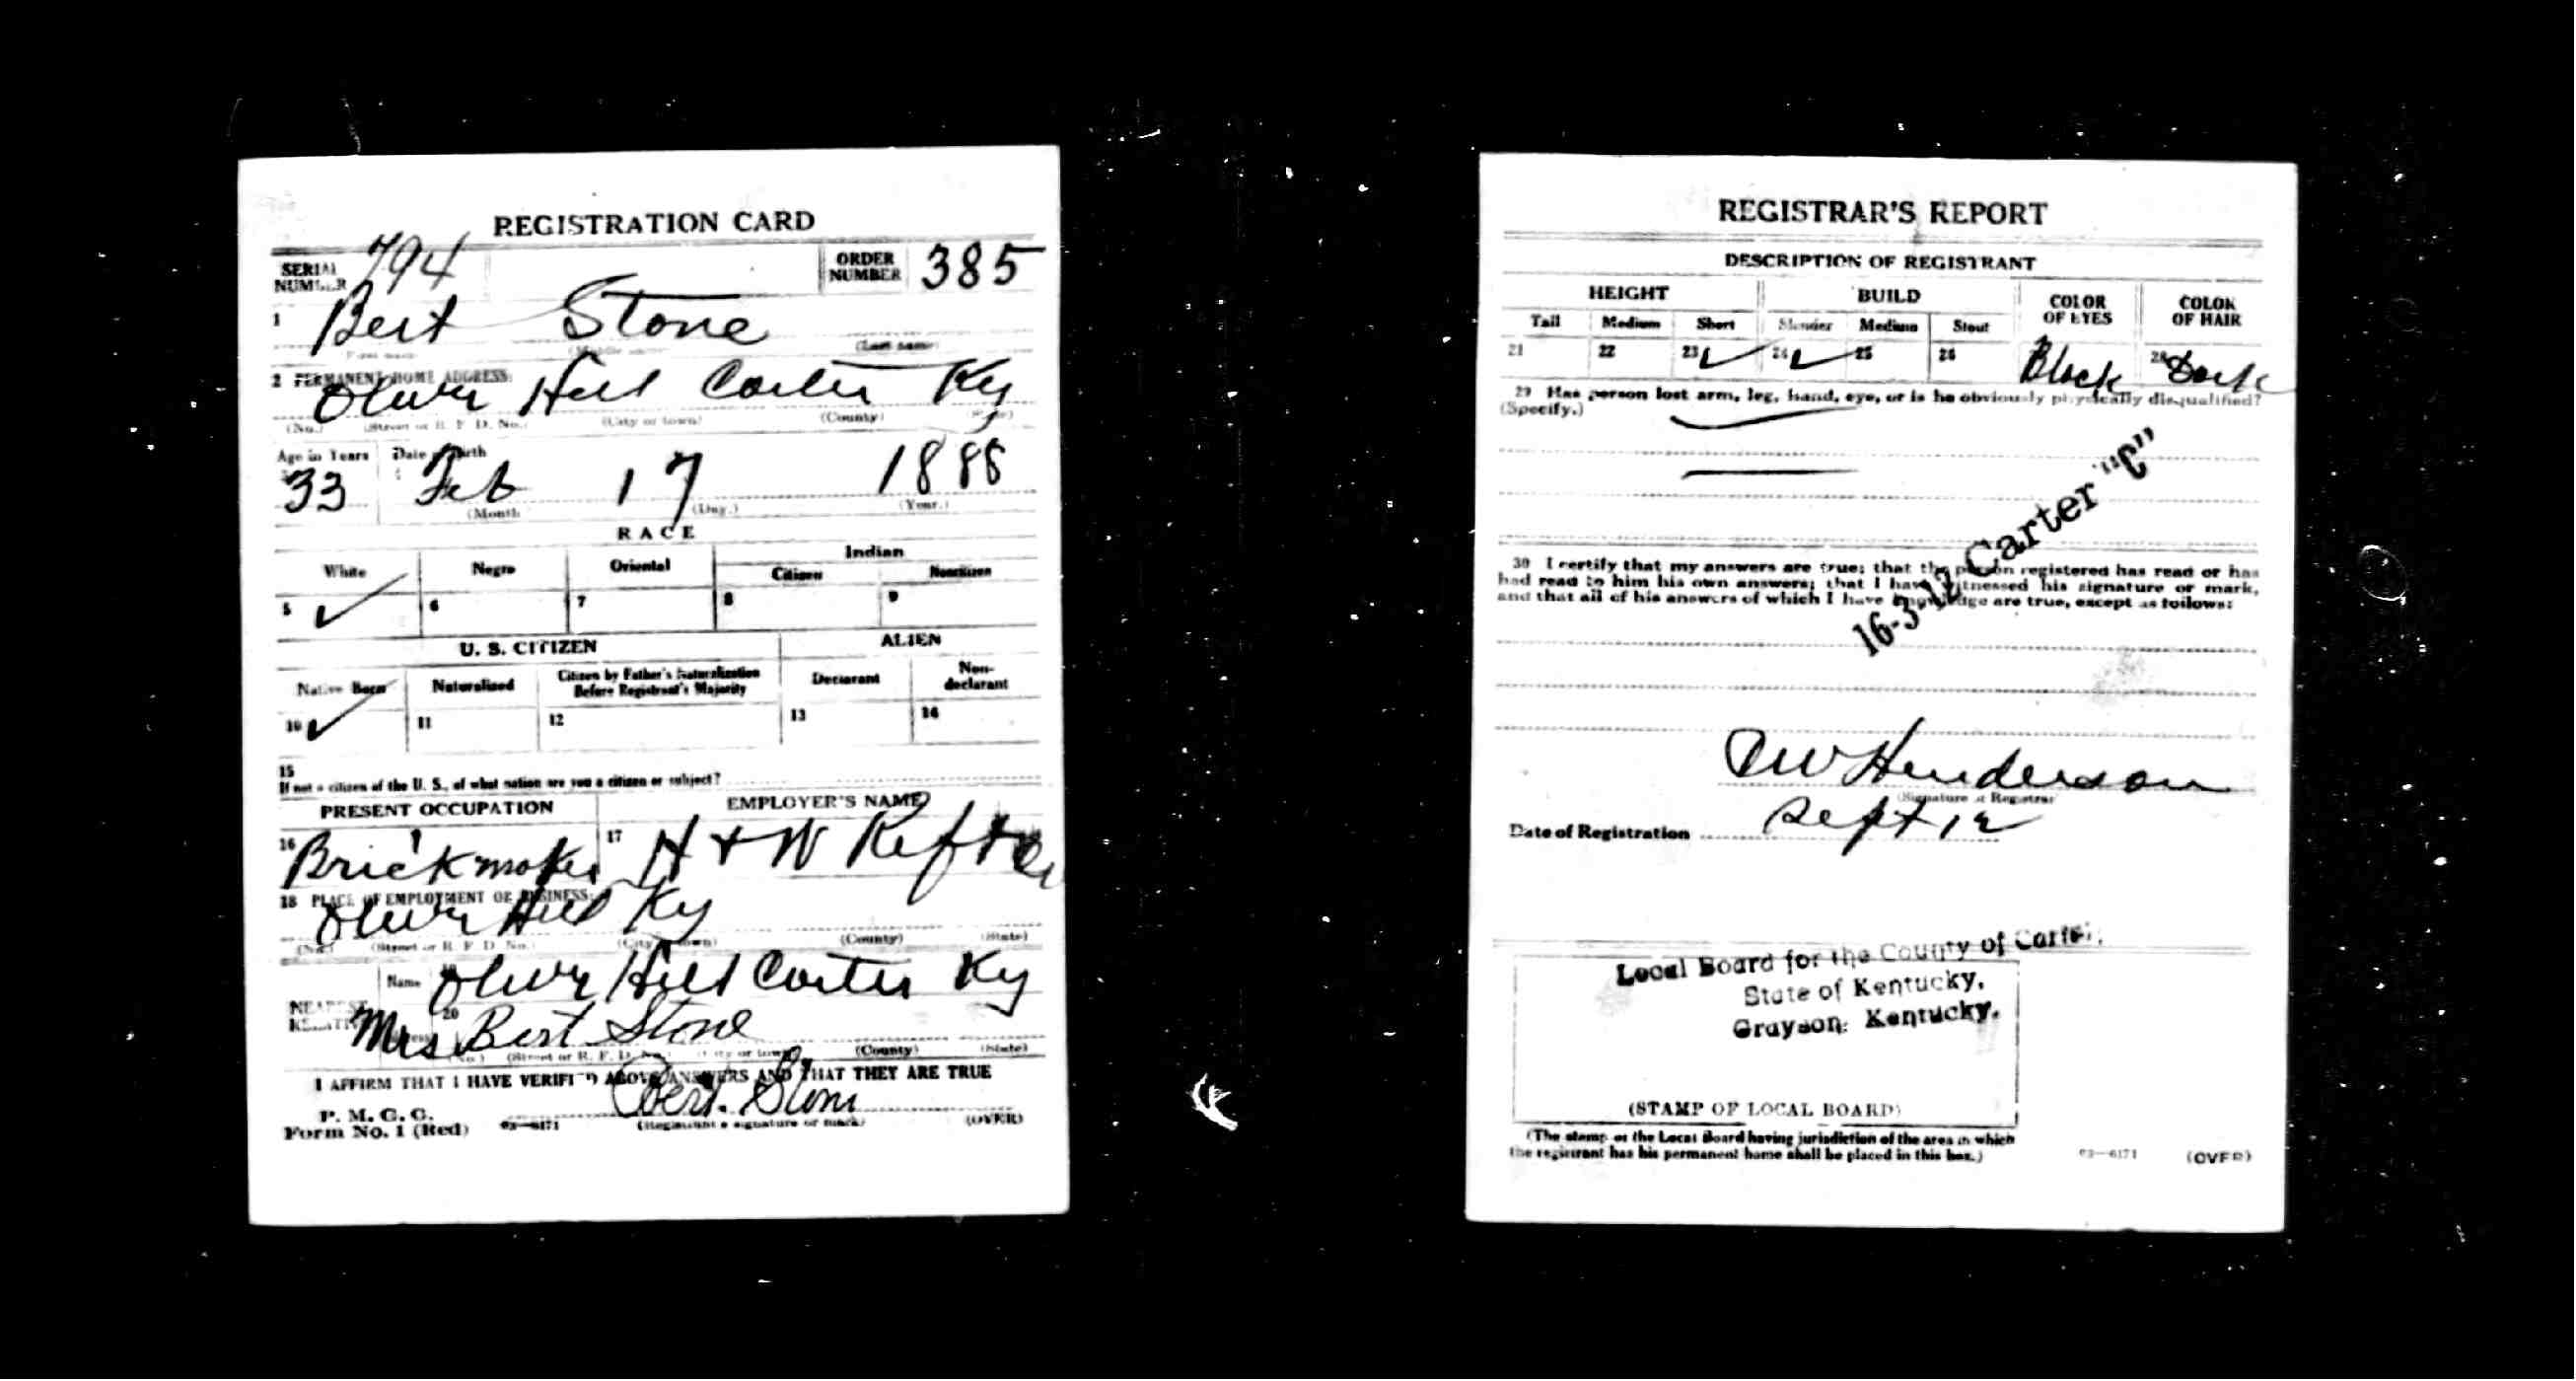 REGISTRATION CARD
SERIAL NUMBER 794
ORDER NUMBER 385
1 Bert Stone
(Last name)
2 PERMANENT HOME ADDRESS:
Oliver Hill Carter Ky
(No.) (Street or R. F. D. No.) (City or town) (County) (State)
Age in Years Date of Birth
33 Feb 17 1885
(Month) (Day.) (Year.)
RACE
White Negro Oriental Indian
Citizen Noncitizen
5 ✓ 6 7 8 9
U. S. CITIZEN ALIEN
Native Born Naturalized Citizen by Father's Naturalization Before Registrant's Majority Declarant Non-declarant
10 ✓ 11 12 13 14
15
If not a citizen of the U. S., of what nation are you a citizen or subject?
PRESENT OCCUPATION EMPLOYER'S NAME
16 Brickmaker 17 H + W
18 PLACE OF EMPLOYMENT OR BUSINESS:
Oliver Hill Ky
(No.) (Street or R. F. D. No.) (City or town) (County) (State)
NEAREST RELATIVE
Name 19 Oliver Hill Carter Ky
20 Mrs Bert Stone
(No.) (Street or R. F. D. No.) (City or town) (County) (State)
I AFFIRM THAT I HAVE VERIFIED ABOVE ANSWERS AND THAT THEY ARE TRUE
P. M. G. O.
Form No. 1 (Red) 03—6171 Bert. Stone
(Registrant's signature or mark) (OVER)
REGISTRAR'S REPORT
DESCRIPTION OF REGISTRANT
HEIGHT BUILD COLOR OF EYES COLOR OF HAIR
Tall Medium Short Slender Medium Stout
21 22 23 ✓ 24 ✓ 25 26 Black 28 Dark
29 Has person lost arm, leg, hand, eye, or is he obviously physically disqualified?
(Specify.)
16-3-12 Carter "C"
30 I certify that my answers are true; that the person registered has read or has
had read to him his own answers; that I have witnessed his signature or mark,
and that all of his answers of which I have knowledge are true, except as follows:
Henderson
(Signature of Registrar)
Date of Registration Sept 12
Local Board for the County of Carter,
State of Kentucky,
Grayson, Kentucky.
(STAMP OF LOCAL BOARD)
(The stamp of the Local Board having jurisdiction of the area in which
the registrant has his permanent home shall be placed in this box.)
03—6171 (OVER)